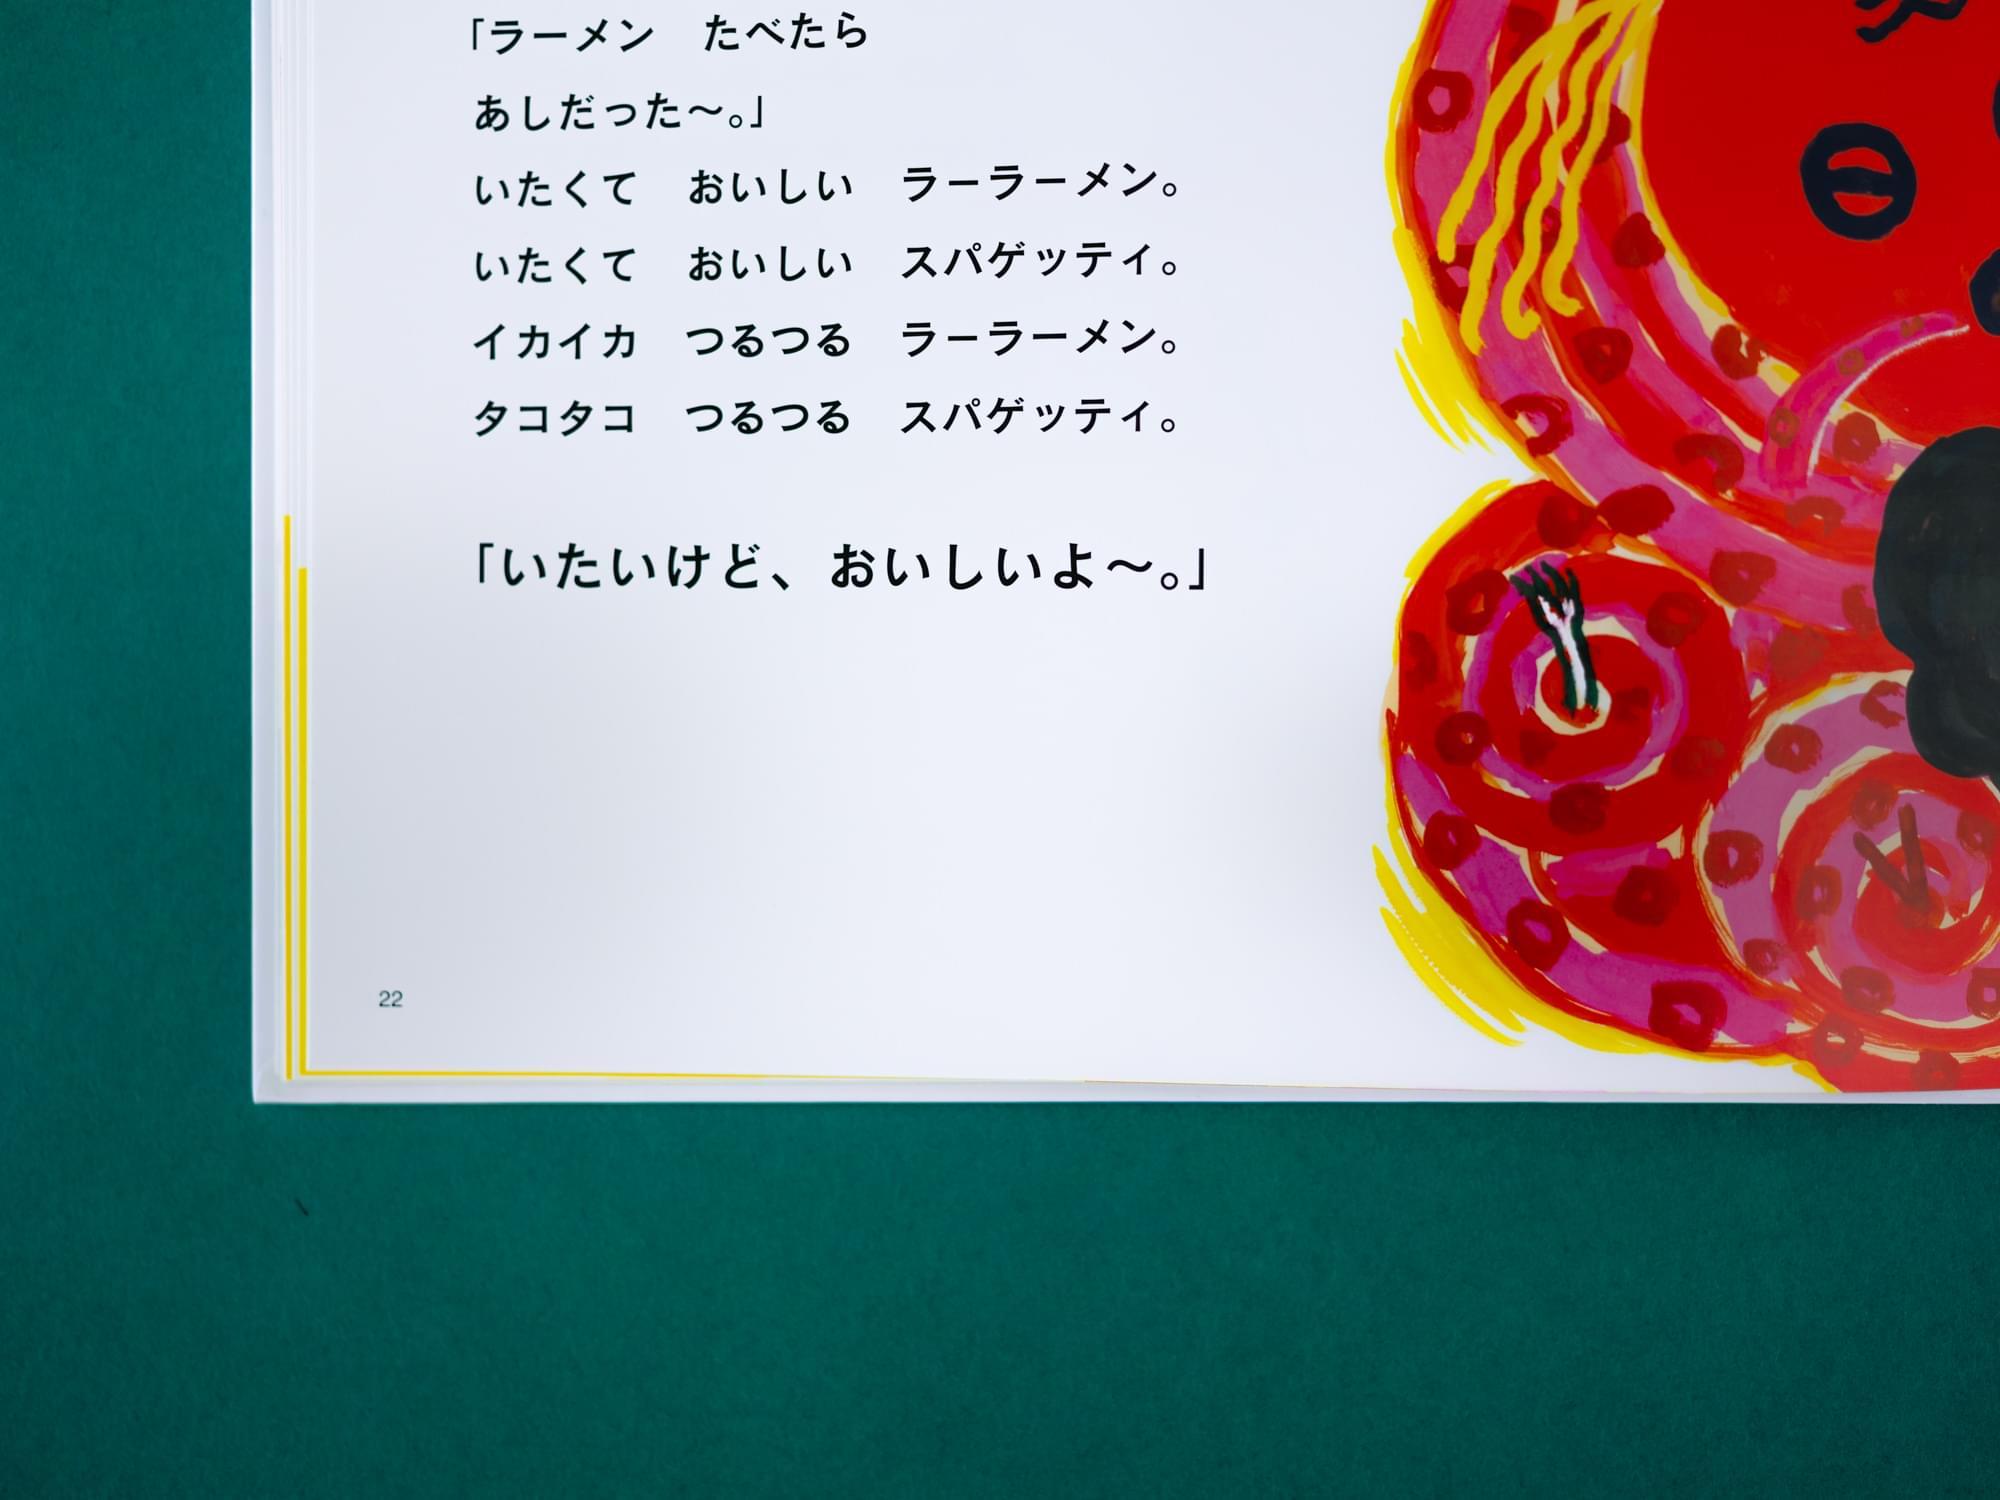 「ラーメン　たべたら
あしだった〜。」
いたくて　おいしい　ラーラーメン。
いたくて　おいしい　スパゲッティ。
イカイカ　つるつる　ラーラーメン。
タコタコ　つるつる　スパゲッティ。
「いたいけど、おいしいよ〜。」
22